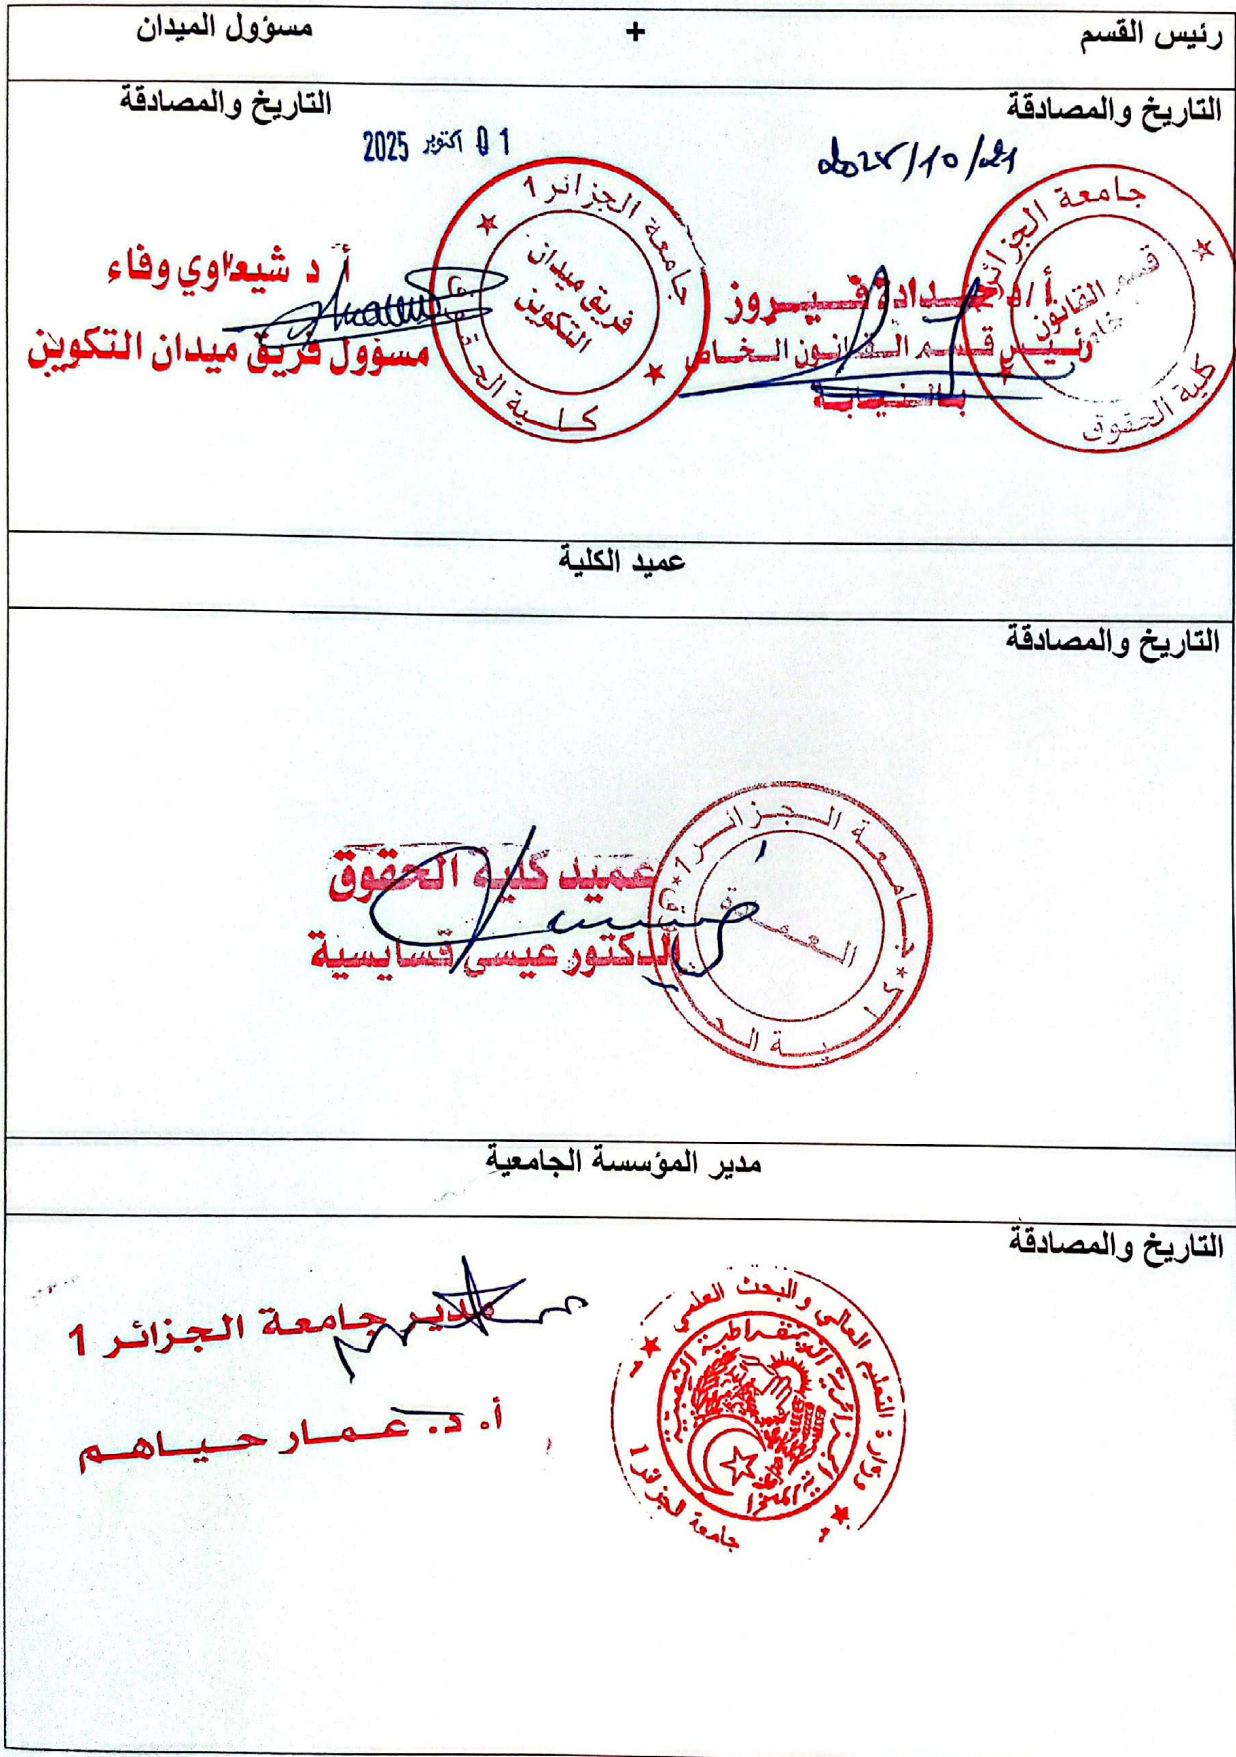 رئيس القسم + مسؤول الميدان
التاريخ والمصادقة
2025/10/21
جامعة الجزائر
قسم القانون
كلية الحقوق
فيروز
رئيس قسم القانون الخاص
بالنيابة
التاريخ والمصادقة
01 اكتوبر 2025
جامعة الجزائر 1
فريق ميدان
التكوين
كلية
أ د شيعاوي وفاء
مسؤول فريق ميدان التكوين
عميد الكلية
التاريخ والمصادقة
جامعة الجزائر 1
العمادة
عميد كلية الحقوق
الدكتور عيسى قسايسية
مدير المؤسسة الجامعية
التاريخ والمصادقة
وزارة التعليم العالي والبحث العلمي
الجزائرية الديمقراطية الشعبية
جامعة الجزائر 1
مدير جامعة الجزائر 1
أ. د. عمار حياهم